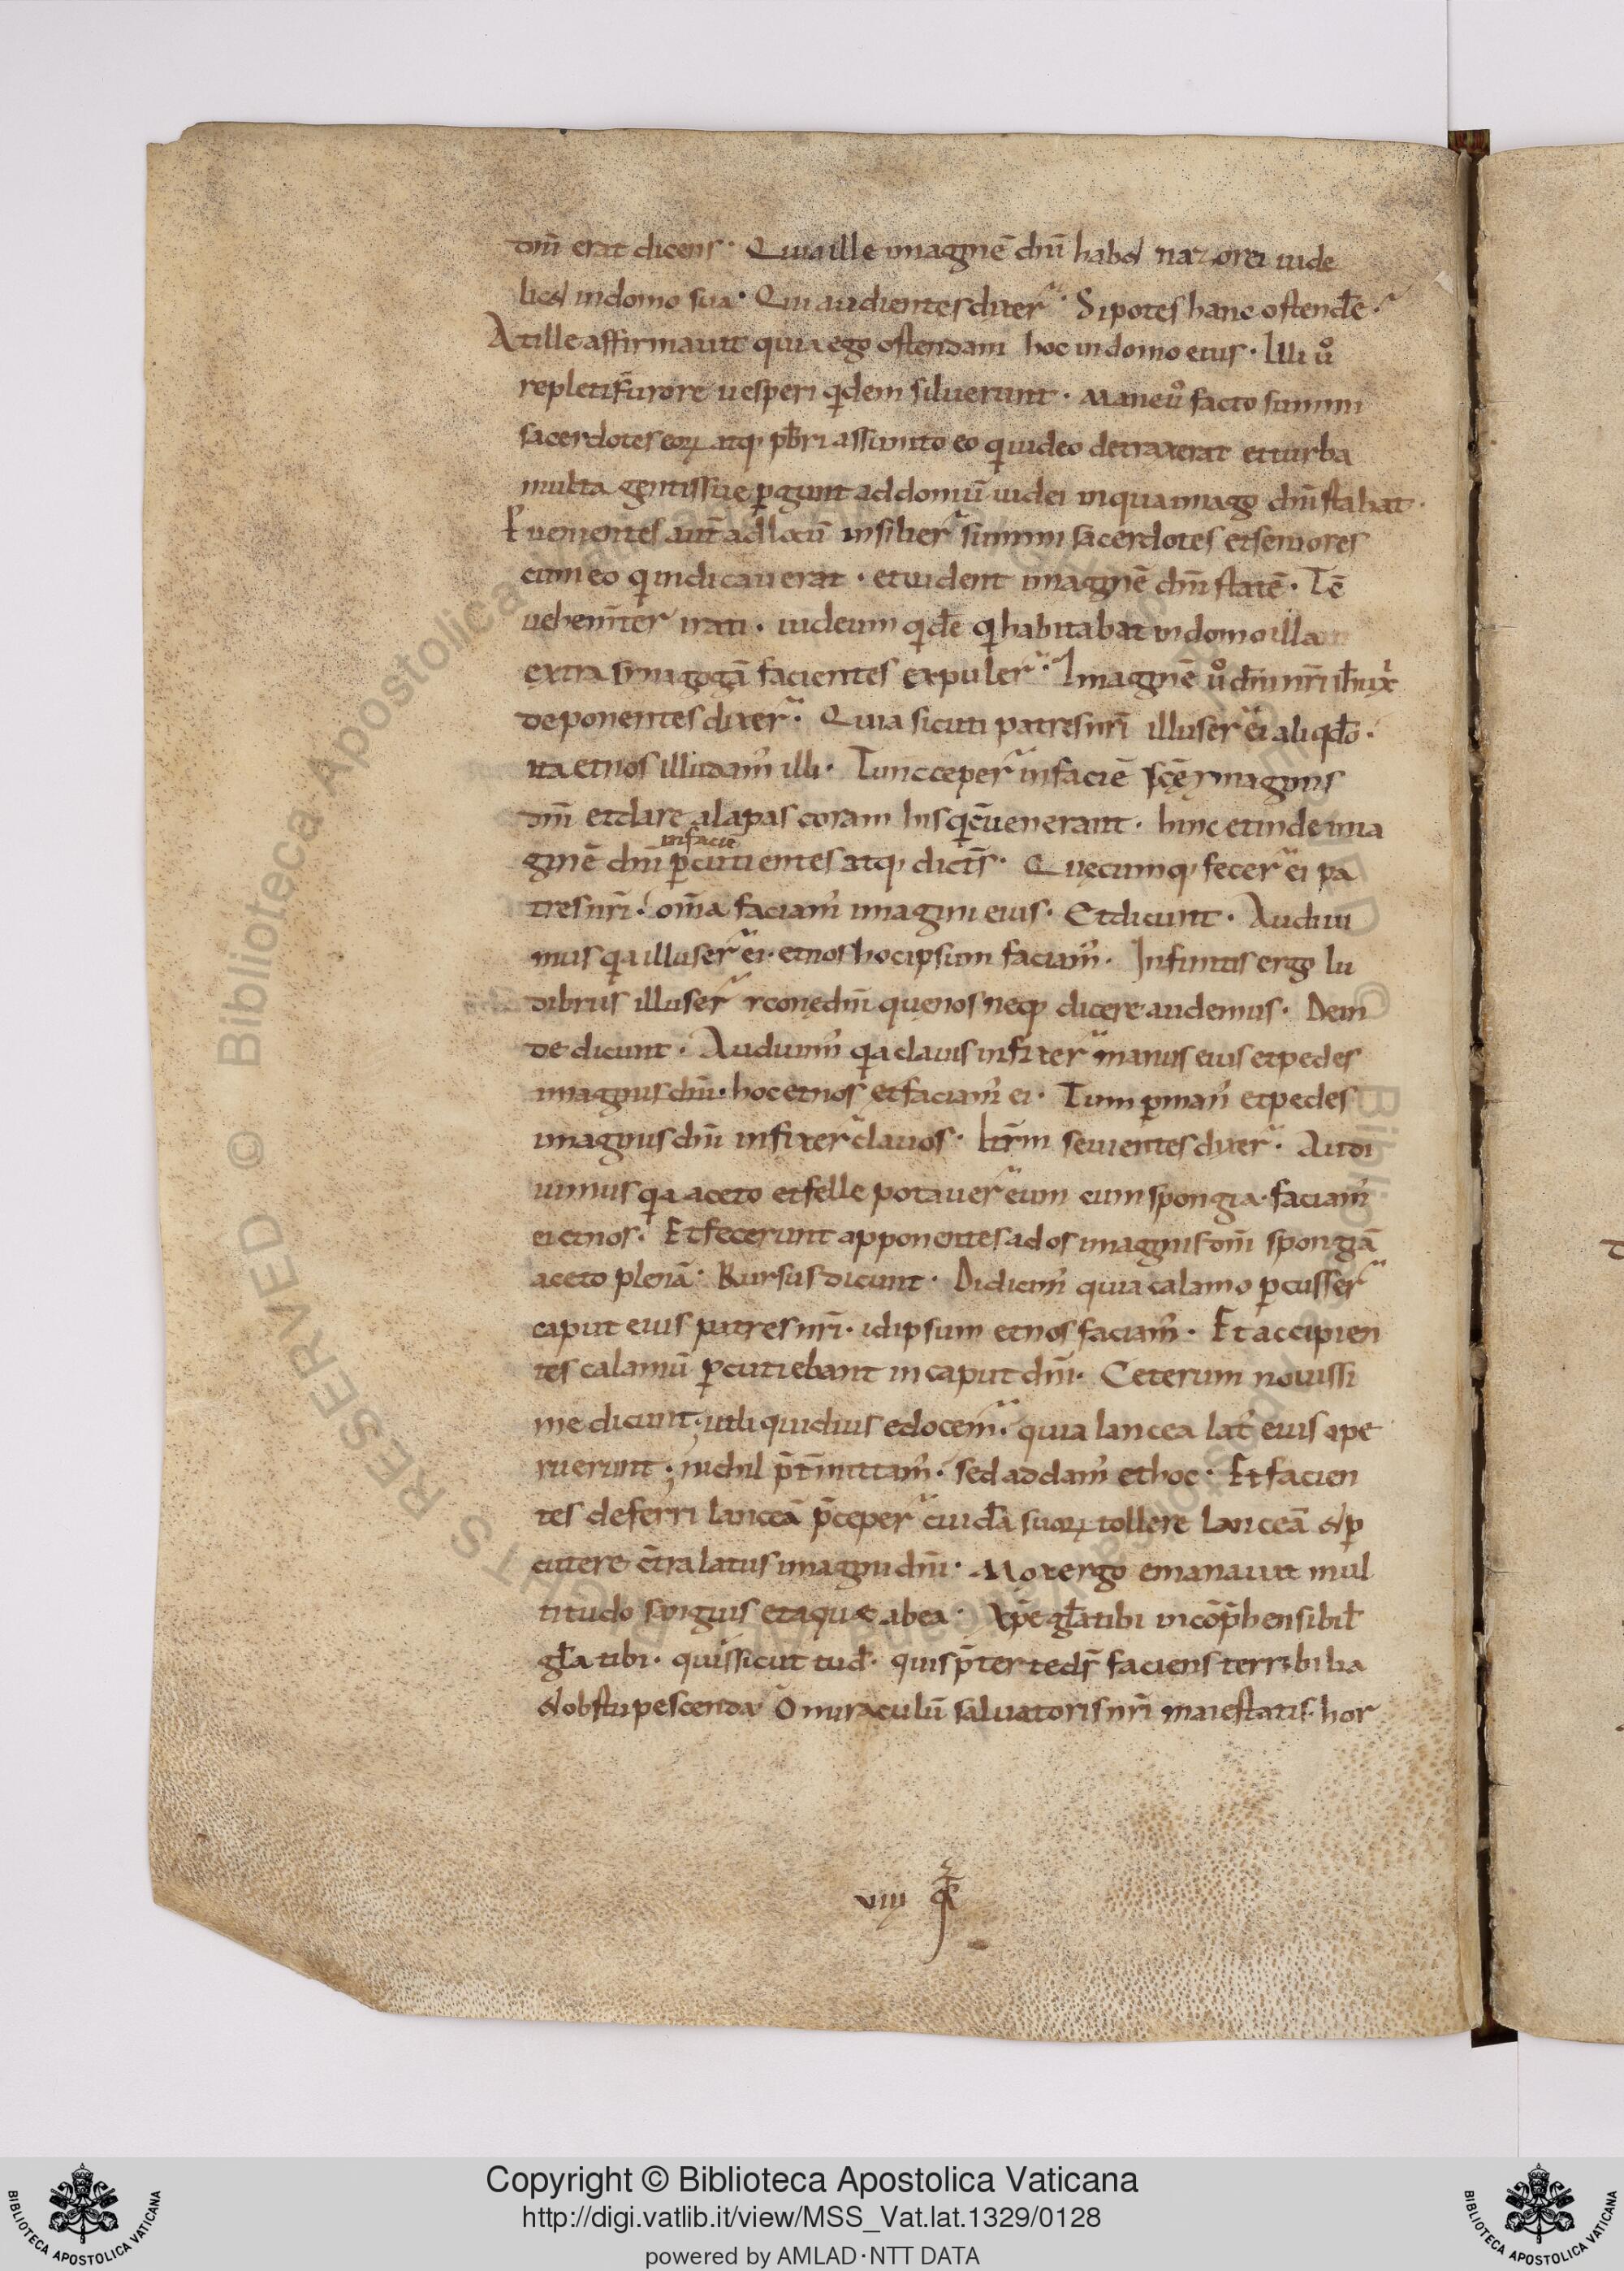 dnī erat dicens · Quia ille imaginē dnī habet nazorei uide
licet in domo sua · Qui audientes dixer̄ · Si potes hanc ostendēe ·
At ille affirmauit quia ego ostendam hoc in domo eius · Illi ůo
repleti furore uesperi qidem siluerunt · Mane ůo facto summi
sacerdotes eoꝝ atq; pbr̄i assumto eo qui deo detraxerat et turba
multa gentis sue ꝑgunt ad domū iudei in qua imago dnī stabat ·
Puenientes aut̄ ad locū insilier̄ summi sacerdotes et seniores
cum eo qi indicauerat · et uident imaginē dnī statē · Tē
uehem̄ter irati · iudeum qidē qi habitabat in domo illa
extra synagogā facientes expuler̄ · Imaginē ůo dn̄i nr̄i ih̄u xp̄i
deponentes dixer̄ · Quia sicuti patres nr̄i illuser̄ ei aliqdo ·
ita et nos illudam' illi · Tunc ceper̄ in faciē scę ymaginis
dnī et dare alapas coram his qi cūenerant · hinc et inde ima
in facie
ginē dnī ꝑcutientes atq; dicēs · Quęcumq; fecer̄ ei pa
tres nr̄i · om̄a faciam' imagini eius · Et dicunt · Audiui
mus qia illuser̄ ei · et nos hoc ipsum faciam' · Infinitis ergo lu
dibriis illuser̄ iconę dnī quę nos neq; dicere audemus · Dein
de dicunt · Audiuim' qia clauis infixer̄ manus eius et pedes
imaginis dnī · hoc et nos et faciam' ei · Tum ꝑ man' et pedes
imaginis dnī infixer̄ clauos · Itr̄m seuientes dixer̄ · Audi
uimus qia aceto et felle potauer̄ eum cum spongia · faciam'
ei et nos · Et fecerunt apponentes ad os imaginis dnī spongā
aceto plenā · Rursus dicunt · Didicim' quia calamo ꝑcusser̄
caput eius patres nr̄i · id ipsum et nos faciam' · Et accipien
tes calamū ꝑcutiebant in caput dnī · Ceterum nouissi
me dicunt · utli quidius edocem' · quia lancea lat' eius ape
ruerunt · nichil p̄t̄mittam' · sed addam' et hoc · Et facien
tes deferri lanceā p̄ceper̄ cuidā suoꝝ tollere lanceā et ꝑ
cutere c̄tra latus imagini dnī · Mox ergo emanauit mul
titudo sanguis et aquę ab ea · Xp̄e gl̄a tibi incōp̄hensibil'
gl̄a tibi · quis sicut tu d̄s · quis p̄ter te ds̄ faciens terribilia
et obstupescenda O miraculū saluatoris nr̄i maiestatis · hor
viiij q̄
Copyright © Biblioteca Apostolica Vaticana
http://digi.vatlib.it/view/MSS_Vat.lat.1329/0128
powered by AMLAD·NTT DATA
BIBLIOTECA APOSTOLICA VATICANA
BIBLIOTECA APOSTOLICA VATICANA